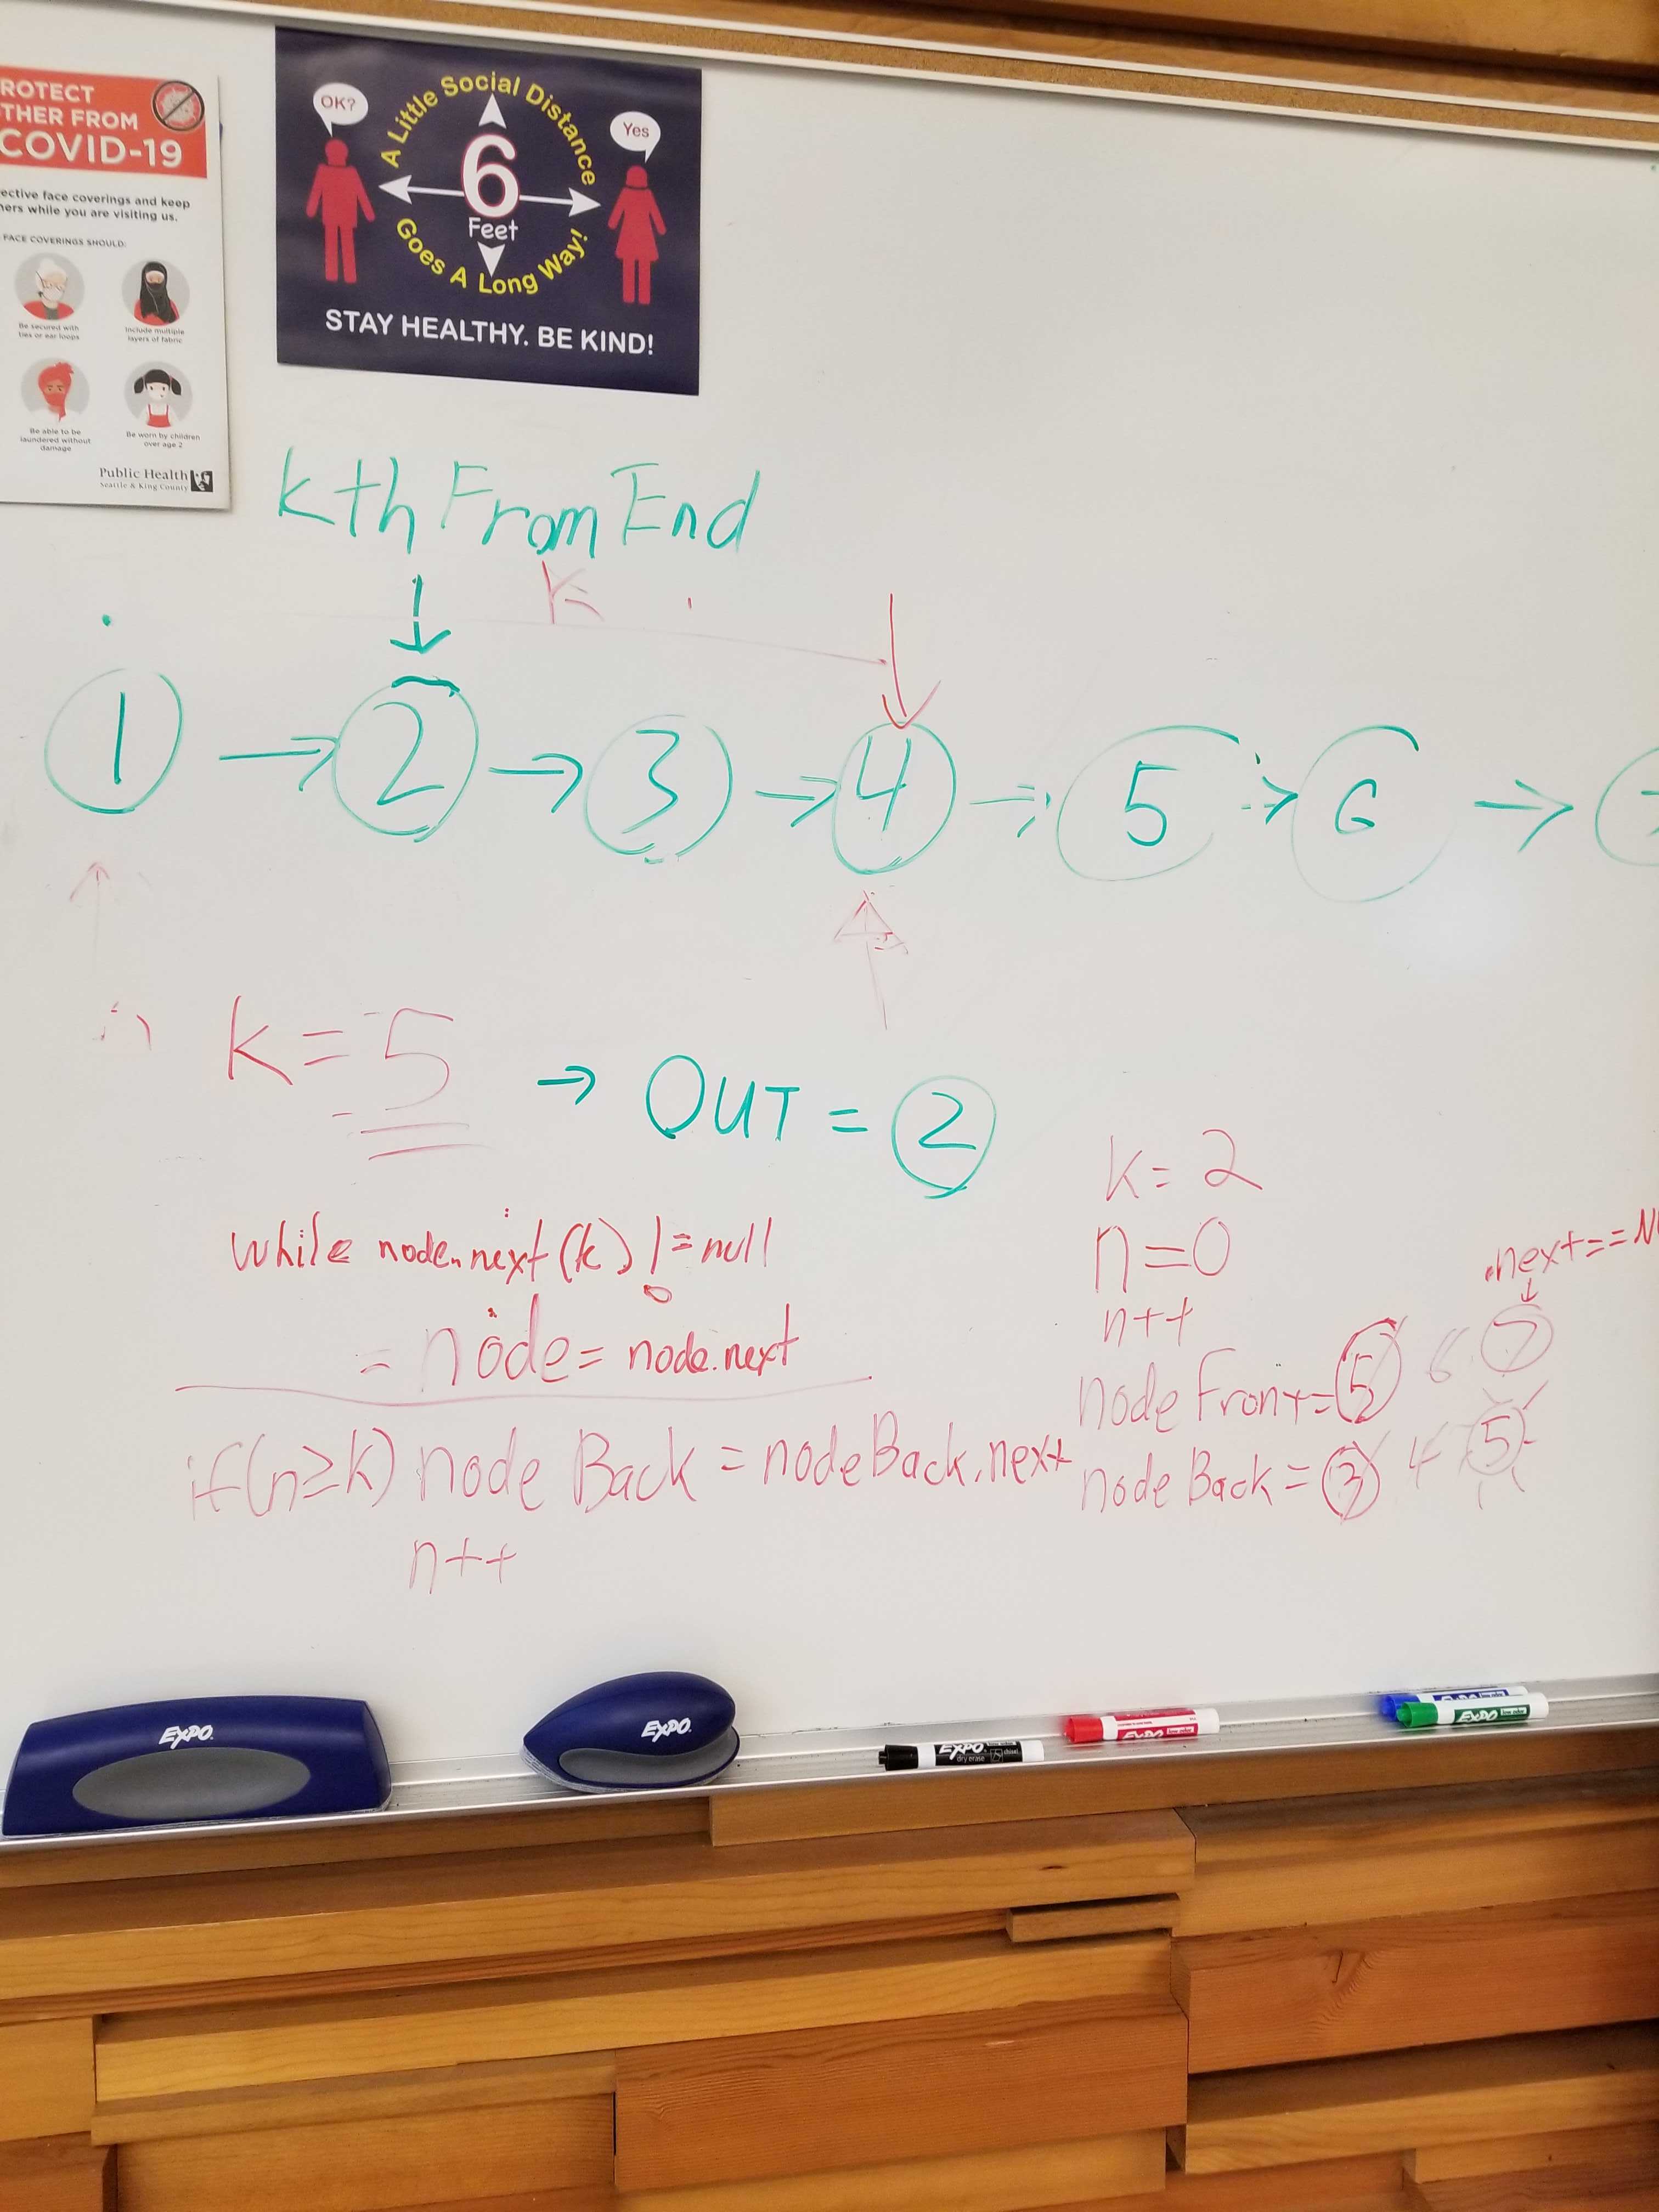 ROTECT
THER FROM
COVID-19
ective face coverings and keep
hers while you are visiting us.
FACE COVERINGS SHOULD:
Be secured with
ties or ear loops
Include multiple
layers of fabric
Be able to be
laundered without
damage
Be worn by children
over age 2
Public Health
Seattle & King County
OK?
A Little Social Distance
Yes
6
Feet
Goes A Long Way!
STAY HEALTHY. BE KIND!
kth From End
K
1 → 2 → 3 → 4 → 5 → 6 →
k = 5 → OUT = 2
while node.next(k) != null
= node = node.next
if(n≥k) node Back = nodeBack.next
n++
k = 2
n = 0
n++
.next==N
node Front = 5 6 7
node Back = 3 4 5
EXPO
EXPO
EXPO
dry erase
chisel
EXPO
EXPO
EXPO